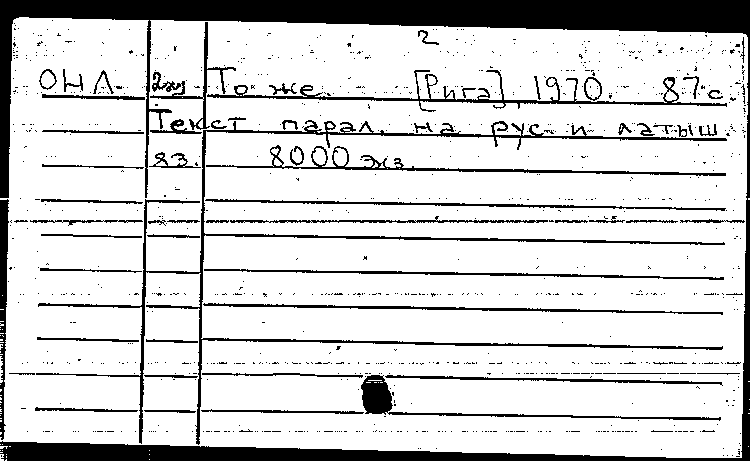 2
ОНЛ 2экз То же. [Рига], 1970. 87 с.
Текст парал. на рус. и латыш.
яз. 8000 экз.